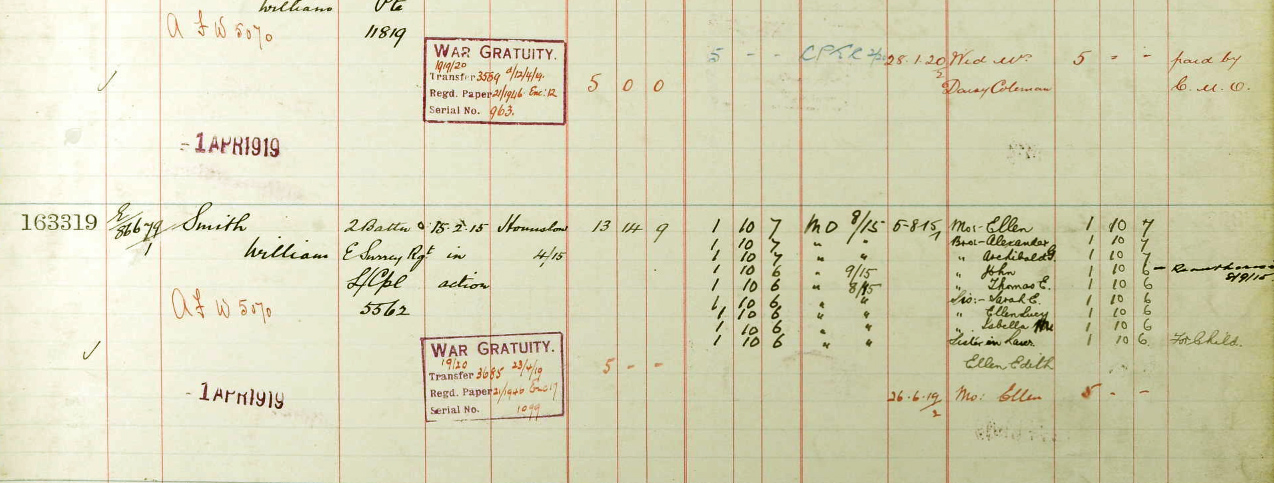 Williams Pte
A F W 5070 11819
WAR GRATUITY.
1919/20
Transfer 3589 2/12/4/19.
Regd. Paper 21/1946 Enc: 12
Serial No. 963.
5 0 0
5 - - 28.1.20 Wid Mrs 5 - - paid by
2 Daisy Coleman C. M. O.
- 1 APR 1919
163319 E/86679/1 Smith 2 Battn 15-2-15 Hounslow 13 14 9 1 10 7 MO 8/15 5-8-15 Mo:- Ellen 1 10 7
William E Surrey Regt in 4/15 1 10 7 " " Bro:- Alexander 1 10 7
1 10 7 " " " Archibald G 1 10 7
L/Cpl action 1 10 6 " 9/15 " John 1 10 6 -
1 10 6 " 8/15 " Thomas E. 1 10 6 8/9/15
A F W 5070 5562 1 10 6 " " Sis:- Sarah E. 1 10 6
1 10 6 " " " Ellen Lucy 1 10 6
1 10 6 " " " Isabella 1 10 6
1 10 6 " " Sister in Law. 1 10 6 For Child.
Ellen Edith " "
WAR GRATUITY.
19/20
Transfer 3685 23/4/19
Regd. Paper 21/1946 Enc 17
Serial No. 1099
5 - -
- 1 APR 1919
26.6.19/2 Mo: Ellen 5 - -